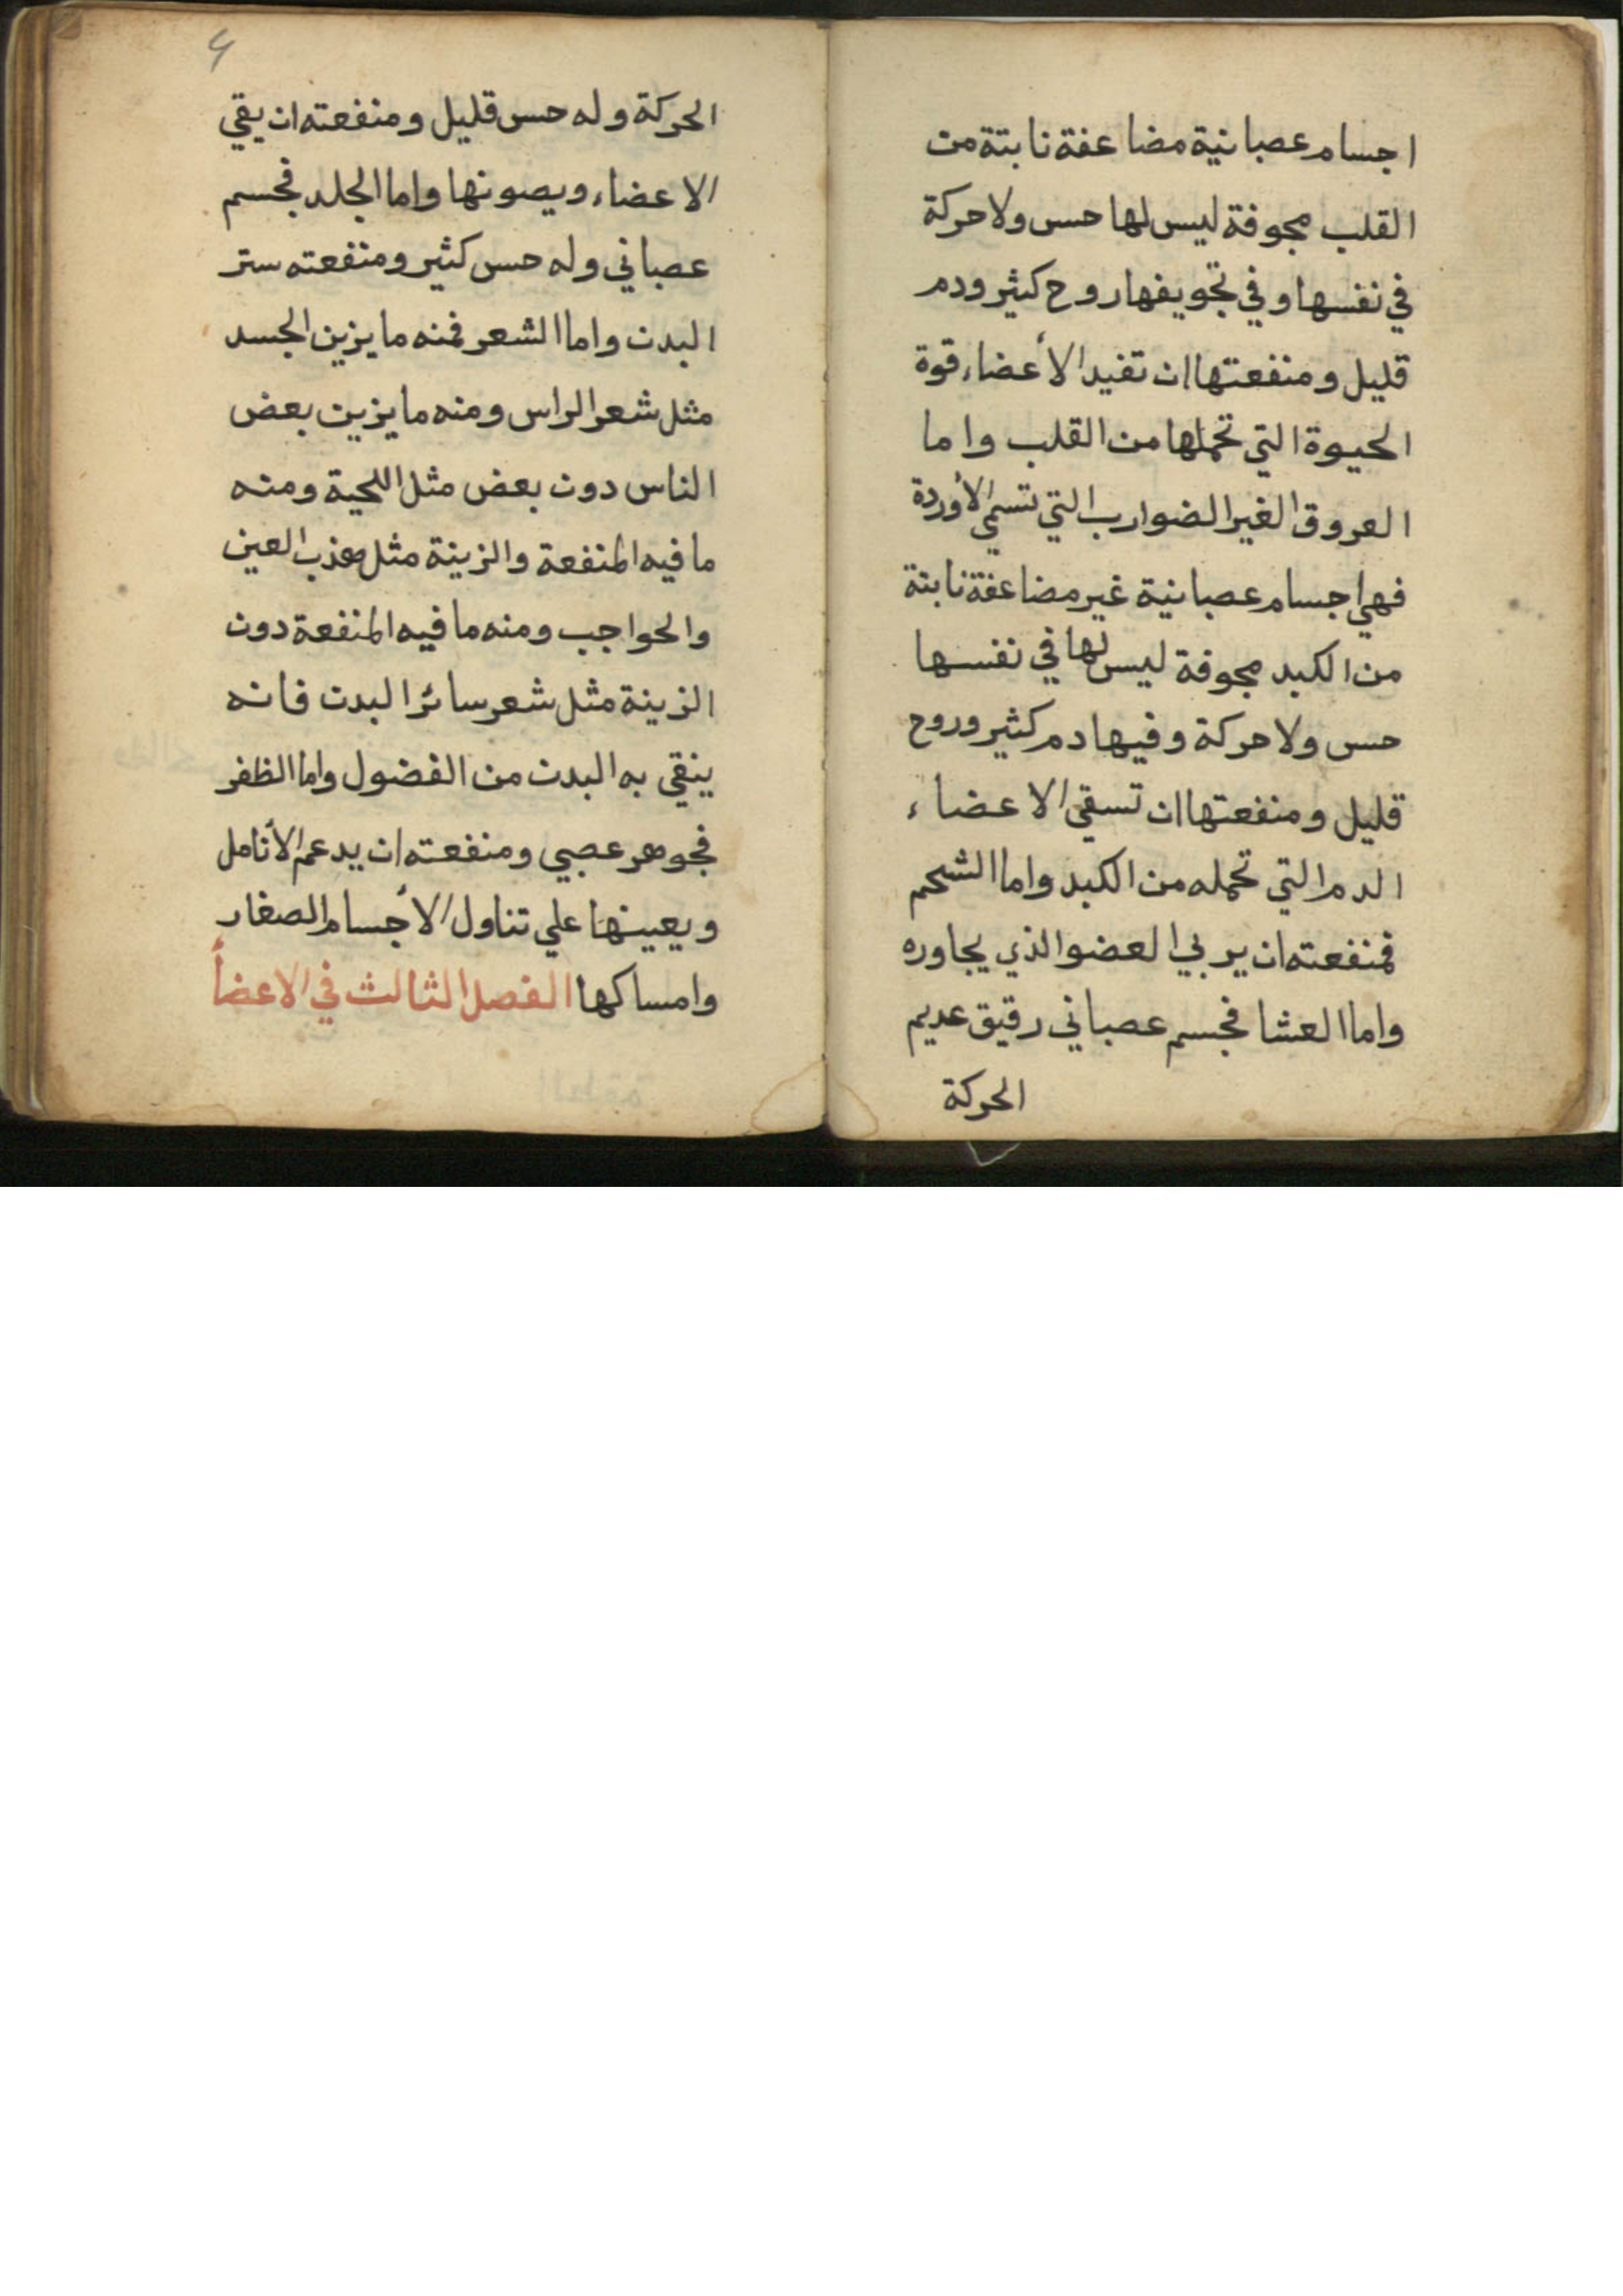 اجسام عصبانية مضاعفة نابتة من
القلب مجوفة ليس لها حس ولا حركة
في نفسها وفي تجويفها روح كثير ودم
قليل ومنفعتها ان تفيد الأعضاء قوة
الحيوة التي تحملها من القلب واما
العروق الغير الضوارب التي تسمي الأوردة
فهي اجسام عصبانية غير مضاعفة نابتة
من الكبد مجوفة ليس لها في نفسها
حس ولا حركة وفيها دم كثير وروح
قليل ومنفعتها ان تسقي الاعضاء
الدم التي تحمله من الكبد واما الشحم
فمنفعته ان يربي العضو الذي يجاوره
واما العشا فجسم عصباني رقيق عديم
الحركة
الحركة وله حس قليل ومنفعته ان يقي
الاعضاء ويصونها واما الجلد فجسم
عصباني وله حس كثير ومنفعته ستر
البدن واما الشعر فمنه ما يزين الجسد
مثل شعر الراس ومنه ما يزين بعض
الناس دون بعض مثل اللحية ومنه
ما فيه المنفعة والزينة مثل هذب العين
والحواجب ومنه ما فيه المنفعة دون
الزينة مثل شعر سائر البدن فانه
ينقي به البدن من الفضول واما الظفر
فجوهر عصبي ومنفعته ان يدعم الأنامل
ويعينها علي تناول الأجسام الصغار
وامساكها الفصل الثالث في الاعضأ